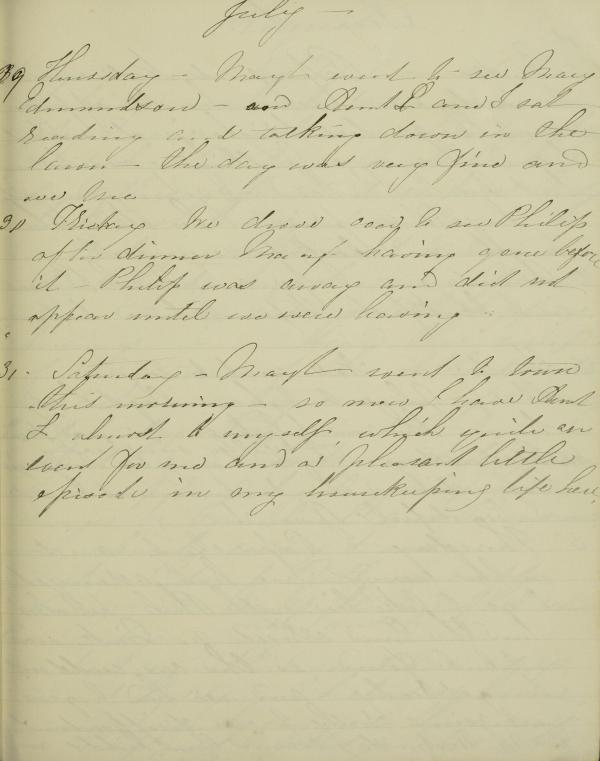 July —
29 Thursday – Margt went to see Mary
Edmundson – and Aunt L and I sat
reading and talking down in the
lawn – the day was very fine and
we
30 Friday We drove over to see Philip
after dinner Margt having gone before
it – Philip was away and did not
appear until we were leaving
31. Saturday – Margt went to town
this morning – so now I have Aunt
L almost to myself, which quite an
event for me and a pleasant little
episode in my housekeeping life here.